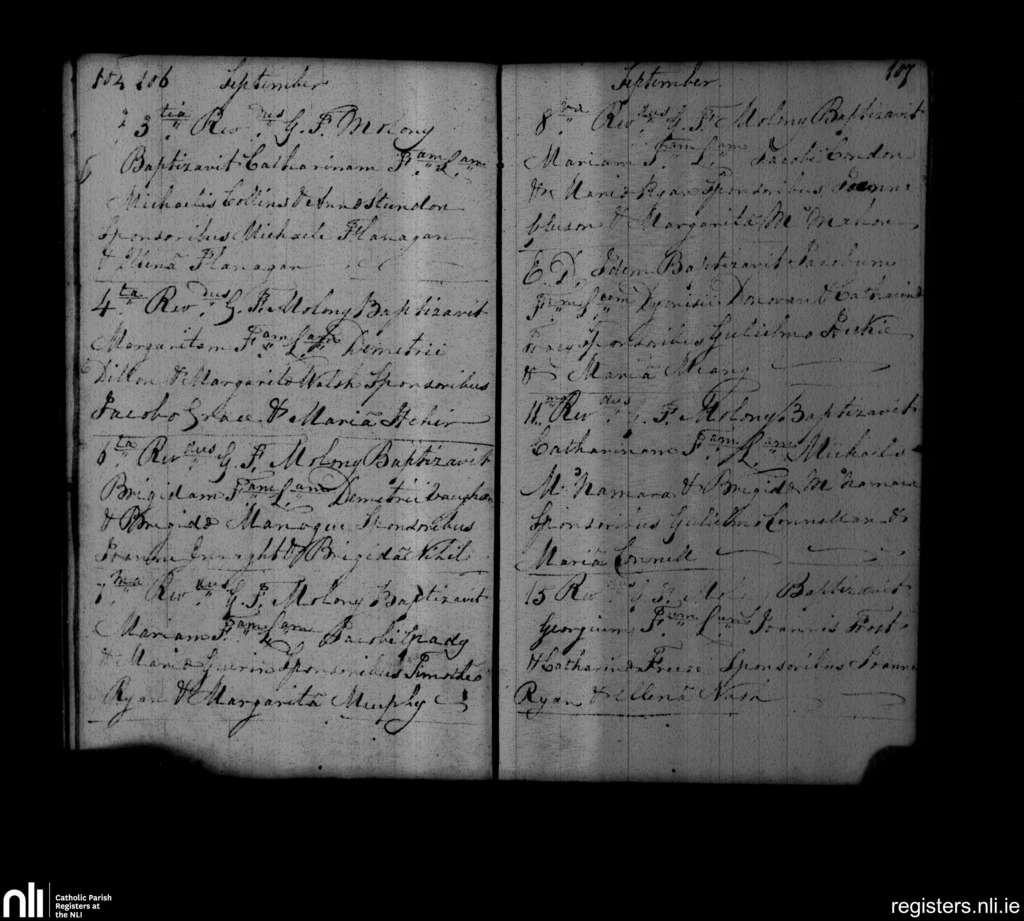 104 106 September
3 tia Revdus G. F. Molony
Baptizavit Catharinam Fam Lam
Michaelis Collins & Annæ Stundon
Sponsoribus Michaele Flanagan
& Ellenâ Flanagan
4ta Revdus G. F. Molony Baptizavit
Margaritam Fam Lam Demetrii
Dillon & Margaritæ Walsh Sponsoribus
Jacobo Grace & Mariâ Hehir
6ta Revdus G. F. Molony Baptizavit
Brigidam Fam Lam Demetrii Vaughan
& Brigidæ Manogue Sponsoribus
Joanne & Brigidâ
7ma Revdus G. F. Molony Baptizavit
Mariam Fam Lam Jacobi Grady
& Mariæ Guerin Sponsoribus Timotheo
Ryan & Margaritâ Murphy
September 107
8va Revdus G. F. Molony Baptizavit
Mariam Fam Lam Jacobi Condon
& Mariæ Ryan Sponsoribus Joanne
& Margaritâ McMahon
E. D. Idem Baptizavit Jacobum
Fum Lum Dyonisii Donovan & Catharinæ
Sponsoribus Gulielmo
& Mariâ Meany
11 Revdus G. F. Molony Baptizavit
Catharinam Fam Lam Michaelis
McNamara & Brigidæ McNamara
Sponsoribus Gulielmo Connellan &
Mariâ Connell
15 Revdus G. F. Baptizavit
Georgium Fum Lum Joannis Frost
& Catharinæ Freese Sponsoribus Joanne
Ryan & Ellenâ Nash
nli Catholic Parish
Registers at
the NLI
registers.nli.ie